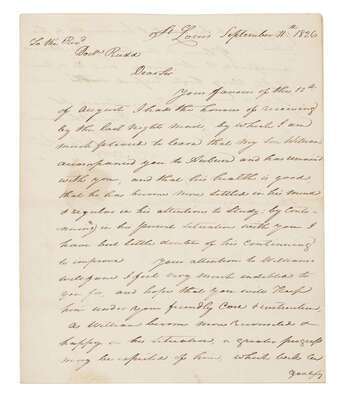 St. Louis September 11th 1826
To the Revd
Doctr Rudd
Dear Sir
Your favour of the 12th
of August I had the honour of receiving
by the last nights mail, by which I am
much pleased to learn that my Son William
accompanied you to Auburn and has remaind
with you, and that his health is good
that he has become more settled in his mind
& regular in his attentions to Study. by Conti-
nuing in his present situation with you I
have but little doubt of his continuing
to improve Your attention to Williams
welfare I feel very much indebted to
you for, and hope that you will keep
him under your friendly Care & instruction
as William becomes more reconciled &
happy in his situation, a greater progress
may be expected of him, which will Cer